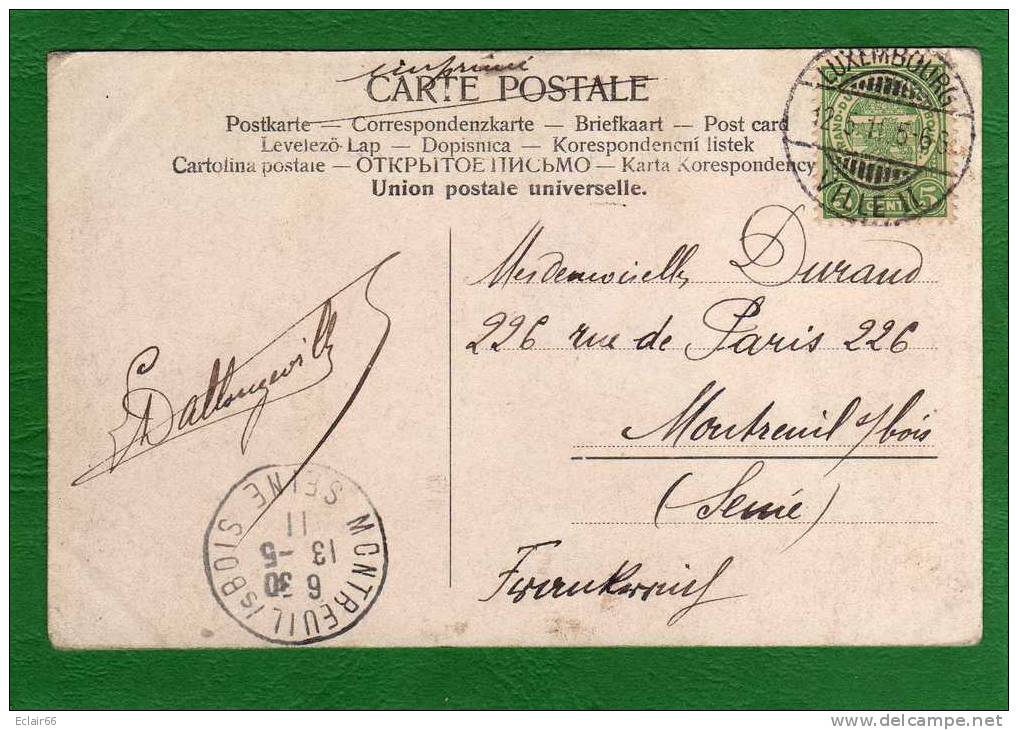 imprimé
CARTE POSTALE
Postkarte — Correspondenzkarte — Briefkaart — Post card
Levelező-Lap — Dopisnica — Korespondencní listek
Cartolina postale — ОТКРЫТОЕ ПИСЬМО — Karta Korespondency
Union postale universelle.
LUXEMBOURG
VILLE
5 CENT
Mesdemoiselles Durand
226 rue de Paris 226
Montreuil s/bois
(Seine)
Frankreich
MONTREUIL S/S BOIS SEINE
6 30
13 -5
11
Eclair66
www.delcampe.net